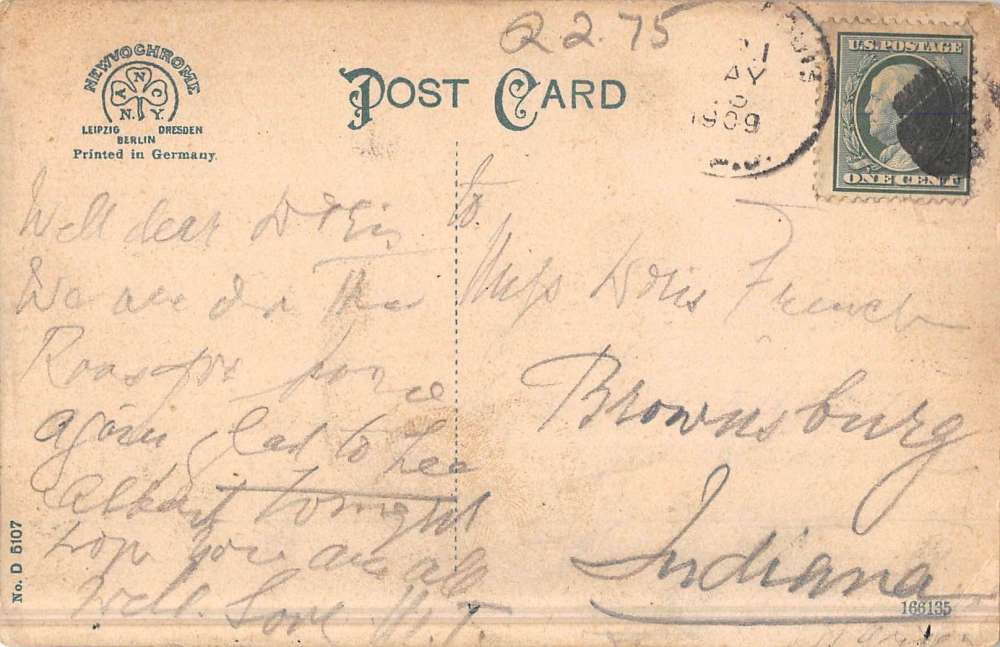 Q 2.75
NEWVOCHROME
A N C
N.Y.
LEIPZIG DRESDEN
BERLIN
Printed in Germany.
POST CARD
1909
U.S. POSTAGE
ONE CENT
Well dear Doris
We are
again glad to
Albert tonight
hope you are all
well. Love
to
Miss Doris French
Brownsburg
Indiana
No. D 5107
166135